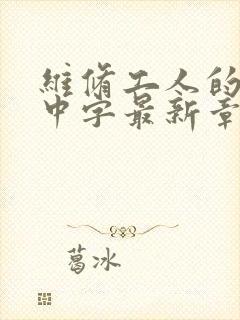 維脩工人的
中字最新章
葛冰